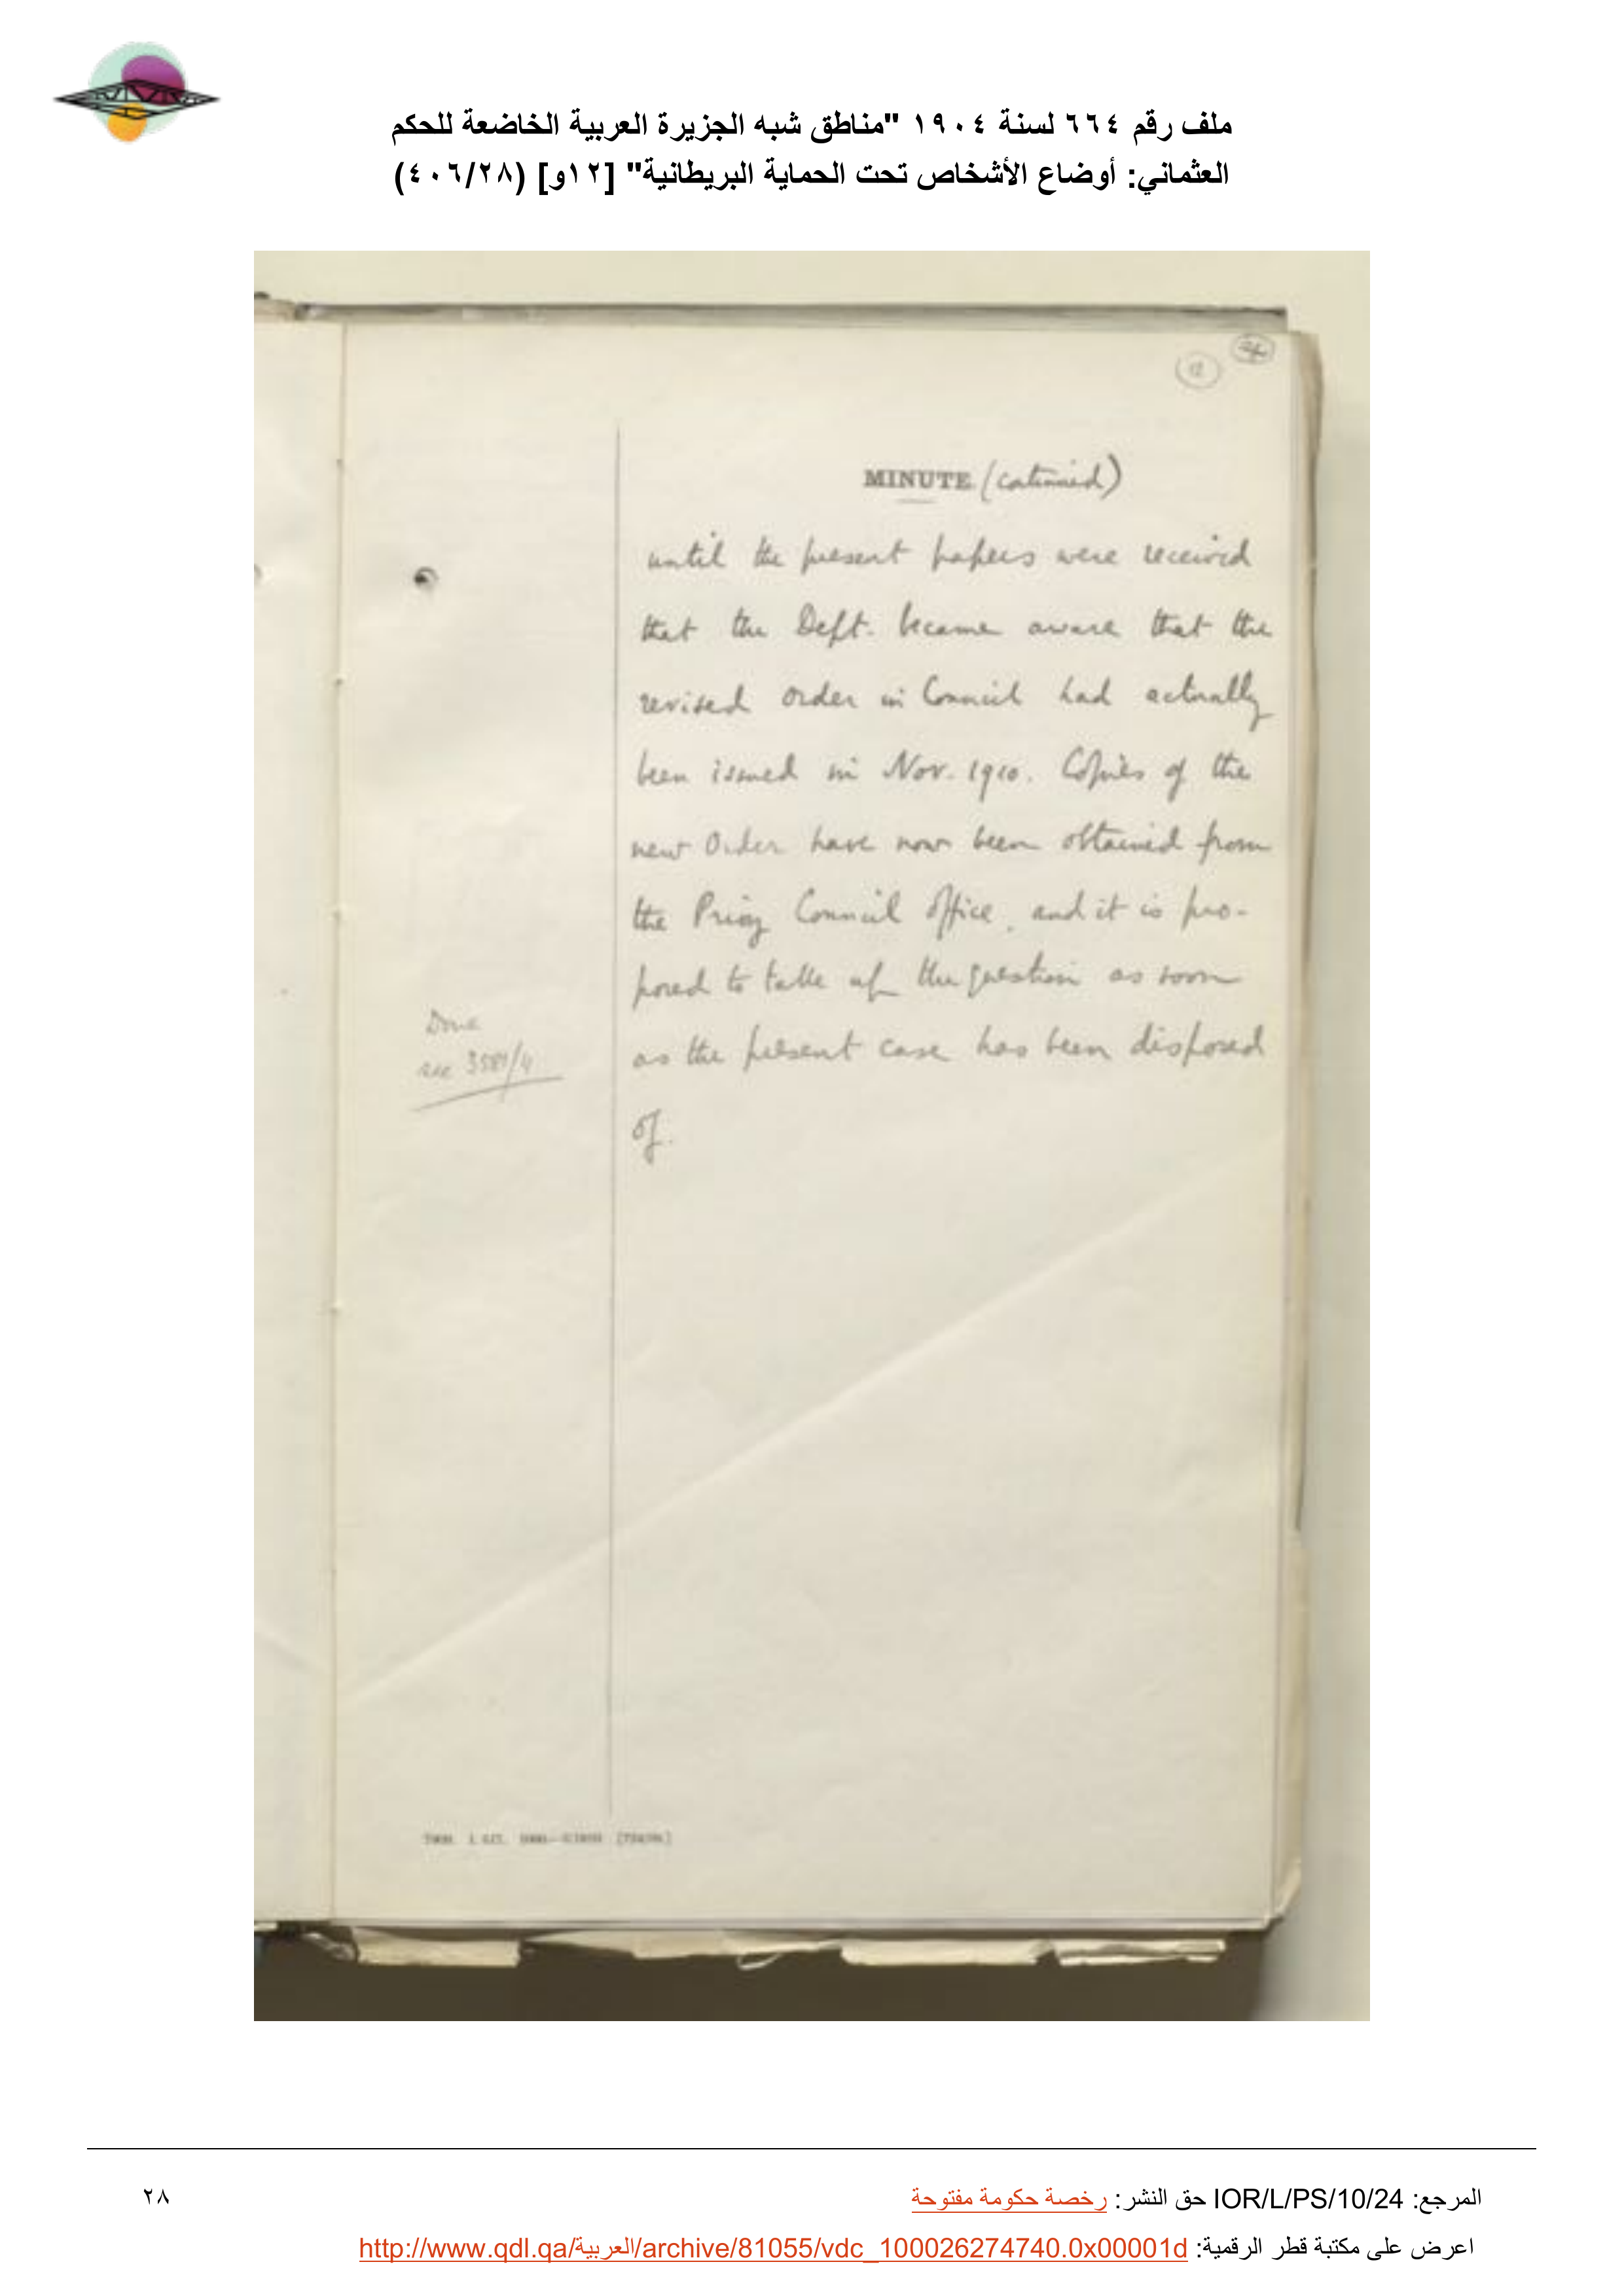 ملف رقم ٦٦٤ لسنة ١٩٠٤ "مناطق شبه الجزيرة العربية الخاضعة للحكم
العثماني: أوضاع الأشخاص تحت الحماية البريطانية" [١٢و] (٤٠٦/٢٨)
12
MINUTE (continued)
until the present papers were received
that the Dept. became aware that the
revised Order in Council had actually
been issued in Nov. 1910. Copies of the
new Order have now been obtained from
the Privy Council Office, and it is pro-
posed to take up the question as soon
as the present case has been disposed
of.
Done
see 3581/4
المرجع: IOR/L/PS/10/24 حق النشر: رخصة حكومة مفتوحة
٢٨
اعرض على مكتبة قطر الرقمية: http://www.qdl.qa/العربية/archive/81055/vdc_100026274740.0x00001d